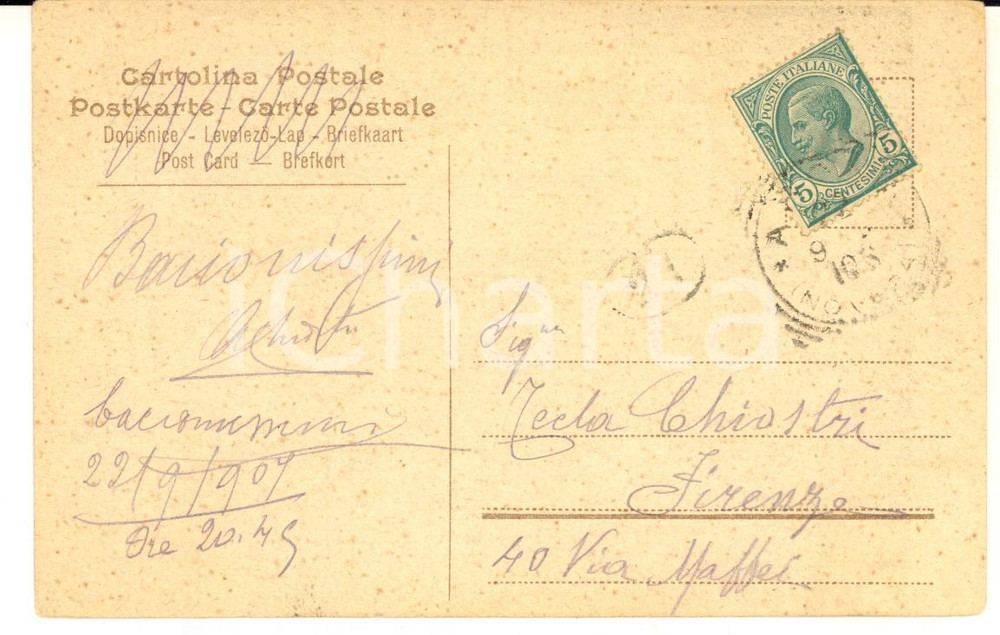 Cartolina Postale
Postkarte - Carte Postale
Dopisnice - Levelező-Lap - Briefkaart
Post Card — Brefkort
POSTE ITALIANE
5 5
CENTESIMI
Bacionissimi
bacionissimi
22/9/907
Ore 20.45
Sig.na
Tecla Chiostri
Firenze
40 Via Maffei
iCharta